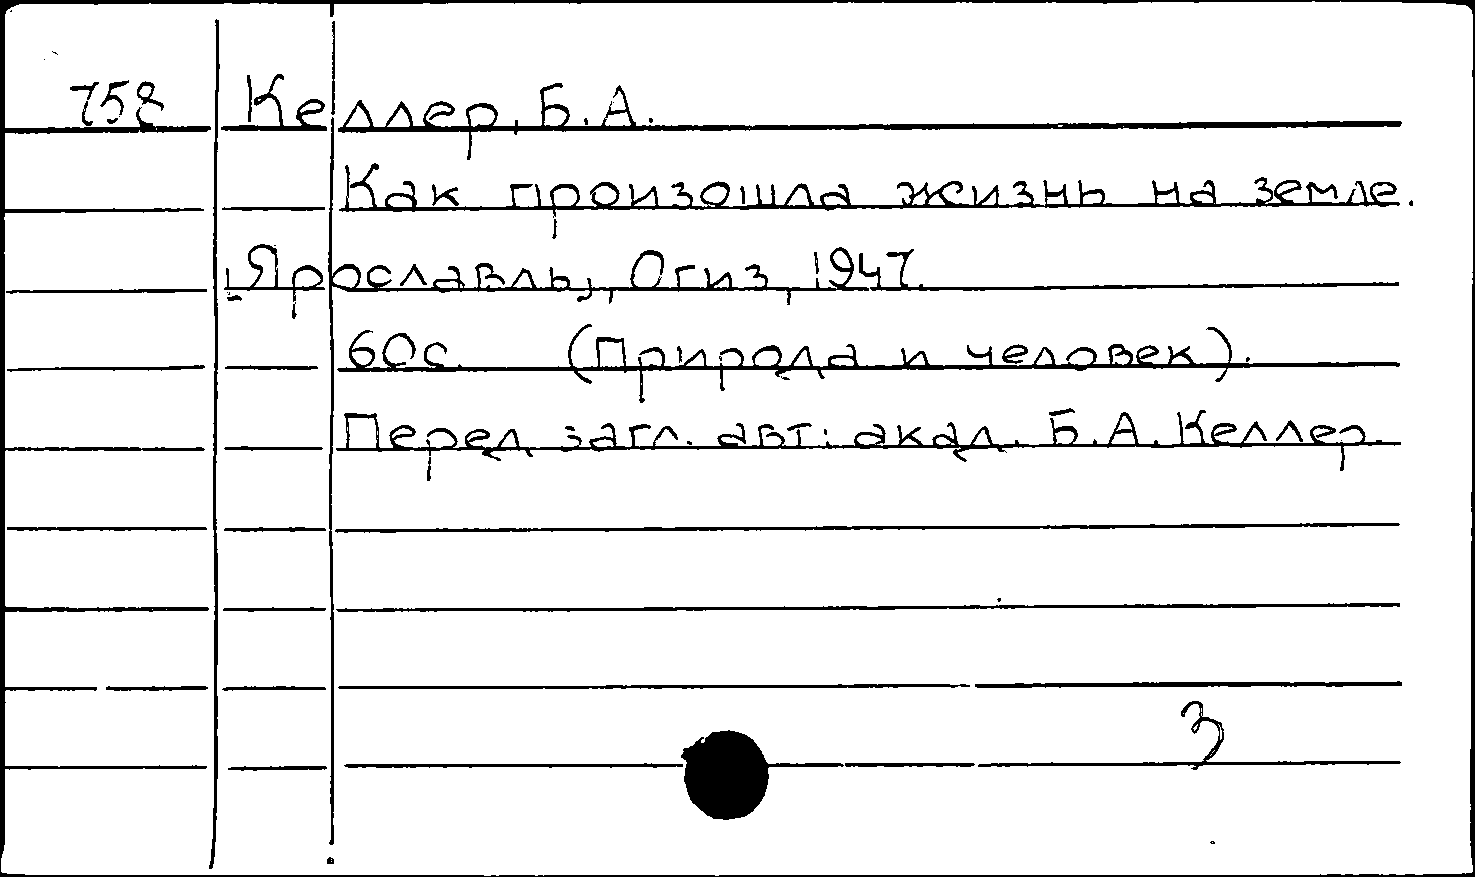 758 Келлер, Б.А.
Как произошла жизнь на земле.
[Ярославль], Огиз, 1947.
60с. (Природа и человек).
Перед загл. авт: акад. Б.А. Келлер.
3